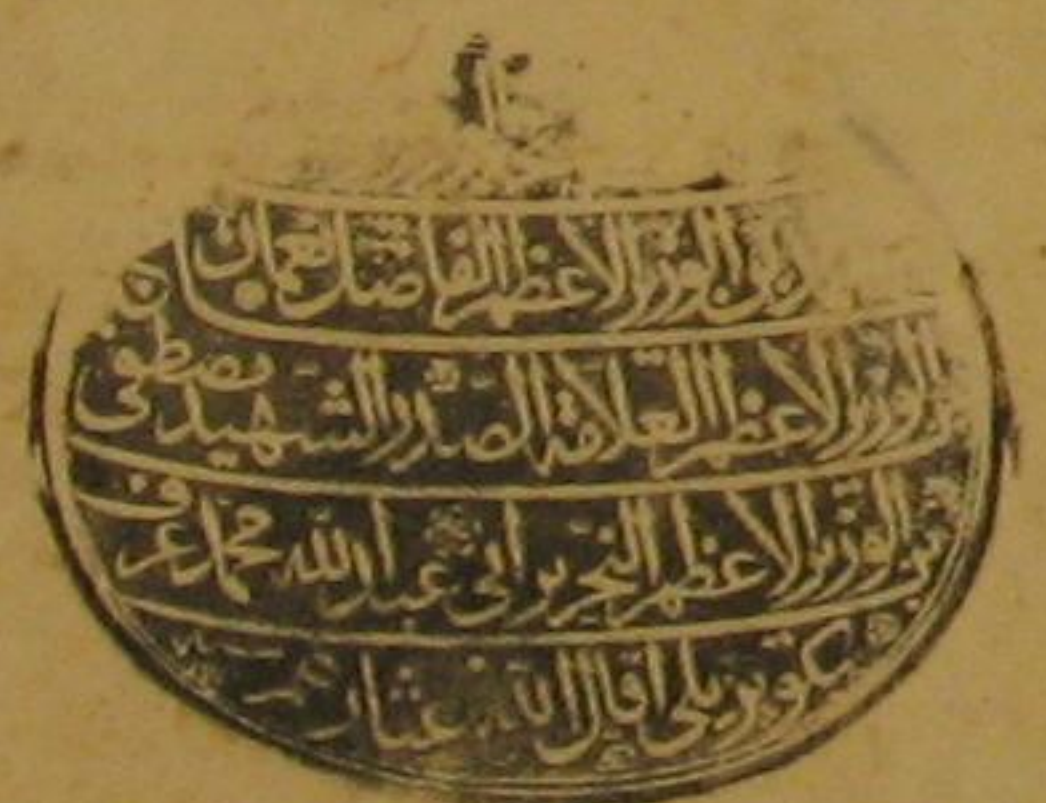 بن الوزير الاعظم الفاضل نعمان
بن الوزير الاعظم العلامة الصدر الشهيد مصطفى
بن الوزير الاعظم النحرير ابي عبد الله محمد عرف
بكوپريلى اقال الله عثارهم